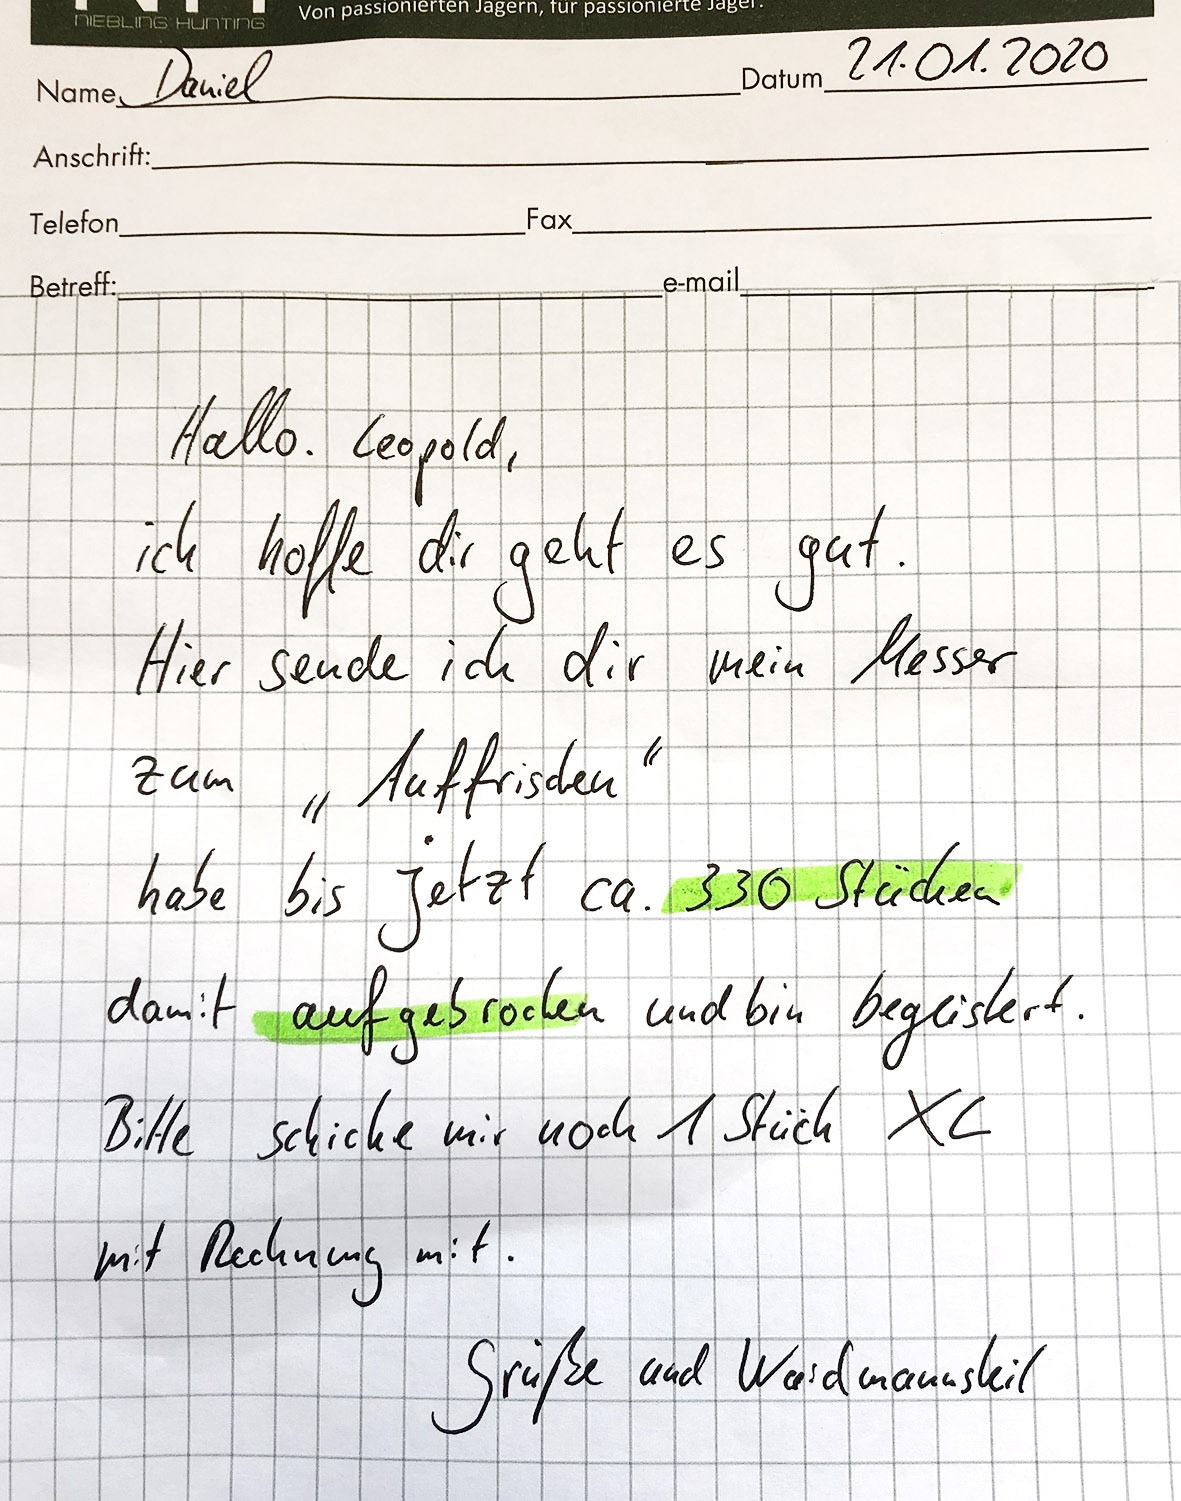 NIEBLING HUNTING
Von passionierten Jägern, für passionierte Jäger.
Name Daniel Datum 21.01.2020
Anschrift:
Telefon Fax
Betreff: e-mail
Hallo. Leopold,
ich hoffe dir geht es gut.
Hier sende ich dir mein Messer
zum „Auffrischen“
habe bis jetzt ca. 330 Stücken
damit aufgebrochen und bin begeistert.
Bitte schicke mir noch 1 Stück XL
mit Rechnung mit.
Grüße und Waidmannsheil